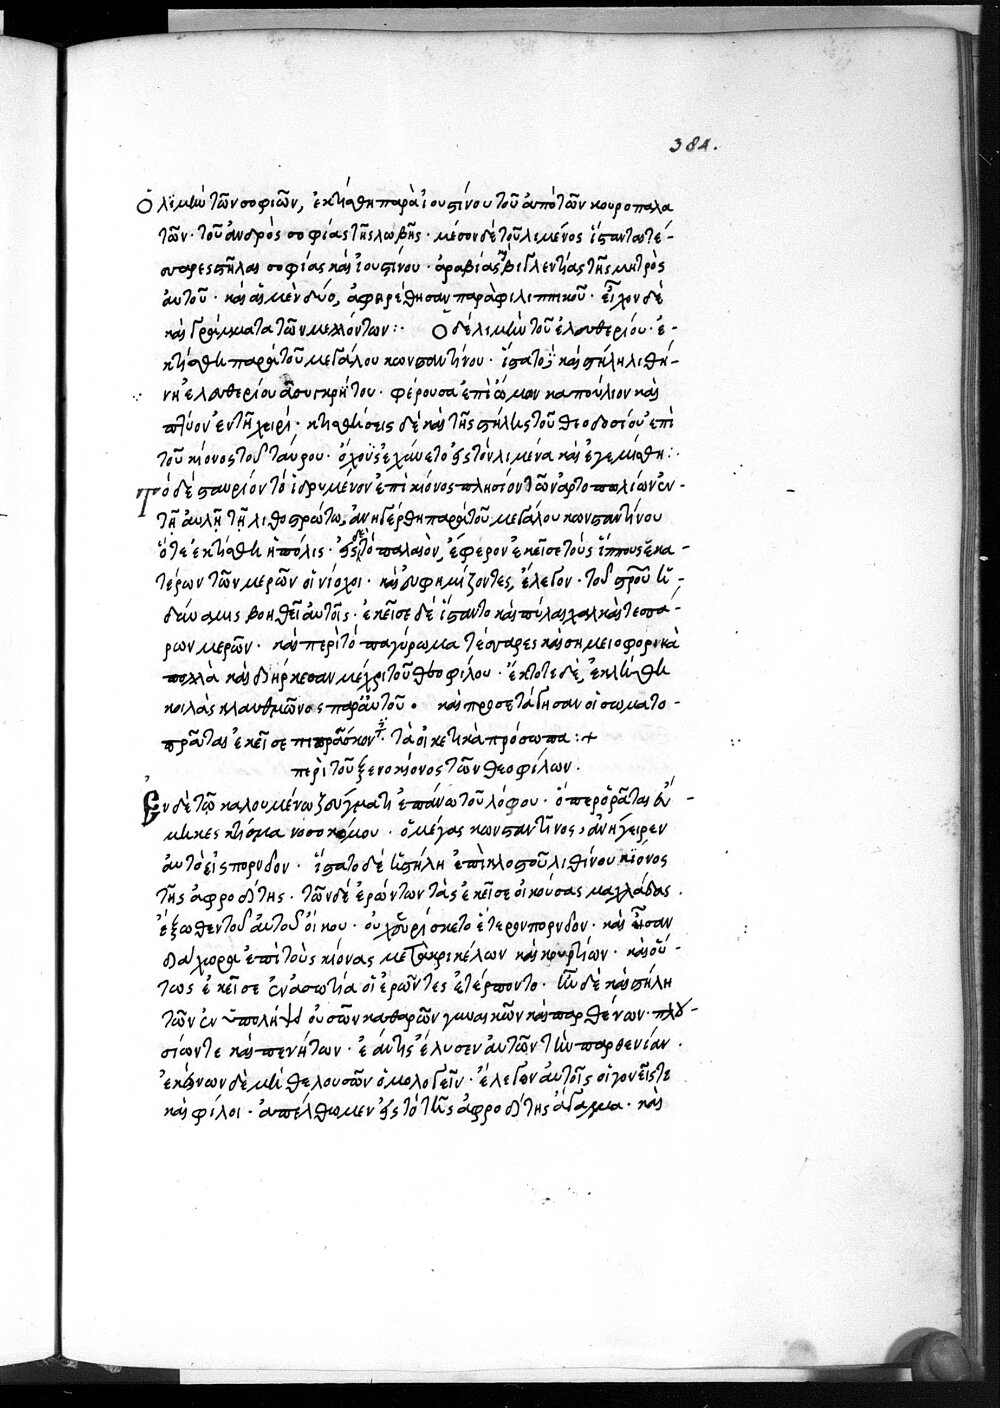 384.
Ὁ λιμὴν τῶν σοφιῶν, ἐκτίσθη παρὰ ἰουστίνου τοῦ ἀπὸ τῶν κουροπαλα
τῶν · τοῦ ἀνδρὸς σοφίας τῆς λωβῆς · μέσον δὲ τοῦ λιμένος ἵσταντο τέσ-
σαρες στῆλαι σοφίας καὶ ἰουστίνου · ἀραβίας βιγλεντίας τῆς μητρὸς
αὐτοῦ · καὶ αἱ μὲν δύο, ἀφῃρέθησαν παρὰ φιλιππικοῦ · εἶχον δὲ
καὶ γράμματα τῶν μελλόντων :· Ὁ δὲ λιμὴν τοῦ ἐλευθερίου · ἐ-
κτίσθη παρὰ τοῦ μεγάλου κωνσταντίνου · ἵστατο καὶ στήλη λιθί-
νη ἐλευθερίου ἀσυγκρήτου · φέρουσα ἐπὶ ὦμον καπούλιον καὶ
πτύον ἐν τῇ χειρί · κτισθείσης δὲ καὶ τῆς στήλης τοῦ θεοδοσίου ἐπὶ
τοῦ κίονος τοῦ ταύρου · ὁ χοῦς ἐχύνετο εἰς τὸν λιμένα καὶ ἐγεμίσθη :·
Τὸ δὲ σταυρίον τὸ ἱδρυμένον ἐπὶ κίονος πλησίον τῶν ἀρτοπωλίων ἐν
τῇ αὐλῇ τῇ λιθοστρώτω, ἀνηγέρθη παρὰ τοῦ μεγάλου κωνσταντίνου
ὅτε ἐκτίσθη ἡ πόλις · εἰς δὲ τὸ παλαιὸν, ἔφερον ἐκεῖσε τοὺς ἵππους ἑκα-
τέρων τῶν μερῶν οἱ νίοχοι · καὶ εὐφημίζοντες, ἔλεγον · τοῦ στροῦ ἡ
δύναμις βοηθεῖ αὐτοῖς · ἐκεῖσε δὲ ἵσταντο καὶ πύλαι χαλκαὶ τεσσά-
ρων μερῶν · καὶ περὶ τὸ παγύρωμα τέσσαρες καὶ σημειοφορικὰ
πολλὰ καὶ διήρκεσαν μέχρι τοῦ θεοφίλου · ἔκτοτε δὲ, ἐκλήθη
κοιλὰς κλαυθμῶνος παρ' αὐτοῦ · καὶ προσετάγησαν οἱ σωματο-
πρᾶται ἐκεῖσε πιπράσκον τὰ οἰκετικὰ πρόσωπα :+
περὶ τοῦ ξενοκίονος τῶν θεοφίλων.
Ἐν δὲ τῷ καλουμένω ζεύγματι ἐπάνω τοῦ λόφου · ὅπερ ὁρᾶται εὐ-
μηκες κτίσμα νοσοκόμου · ὁ μέγας κωνσταντῖνος, ἀνήγειρεν
αὐτὸ εἰς πορνεῖον · ἵστατο δὲ ἡ στήλη ἐπὶ κλοστοῦ λιθίνου κίονος
τῆς ἀφροδίτης · τῶν δὲ ἐρώντων τὰς ἐκεῖσε οἰκούσας μαχλάδας ·
ἔξωθεν τοῦ αὐτοῦ οἴκου · οὐχ εὑρίσκετο ἕτερον πορνεῖον · καὶ ἦσαν
διάχωρα ἐπὶ τοὺς κίονας μετὰ κρικέλων καὶ κουρτίων · καὶ οὕ-
τως ἐκεῖσε ἐν ἀσωτία οἱ ἐρῶντες ἐτέρποντο · ἦν δὲ καὶ στήλη
τῶν ἐν ὑπολήψει οὐσῶν καθαρῶν γυναικῶν καὶ παρθένων · πλου-
σίων τε καὶ πενήτων · ἐάν τις ἔλυσεν αὐτῶν τὴν παρθενίαν ·
ἐκείνων δὲ μὴ θελουσῶν ὁμολογεῖν · ἔλεγον αὐτοῖς οἱ γονεῖς τε
καὶ φίλοι · ἀπέλθωμεν εἰς τὸ τῆς ἀφροδίτης ἄγαλμα · καὶ